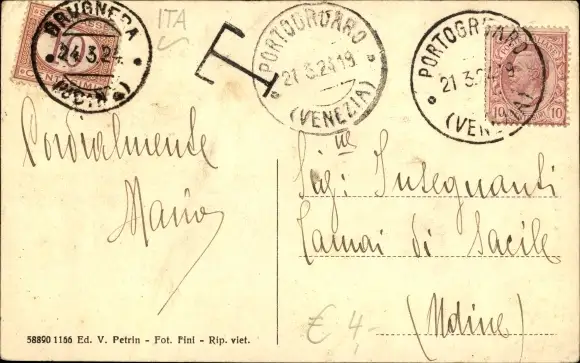 BRUGNERA
24.3.24
(UDINE)
SEGNA
10
CENTESIMI
ITA
T
PORTOGRUARO
21.3.24 19
(VENEZIA)
PORTOGRUARO
21 3.24 19
(VENEZIA)
10 10
Cordialmente
Sig.ne Insegnanti
Camai di Sacile
(Udine)
€ 4,-
58890 1166 Ed. V. Petrin - Fot. Fini - Rip. viet.